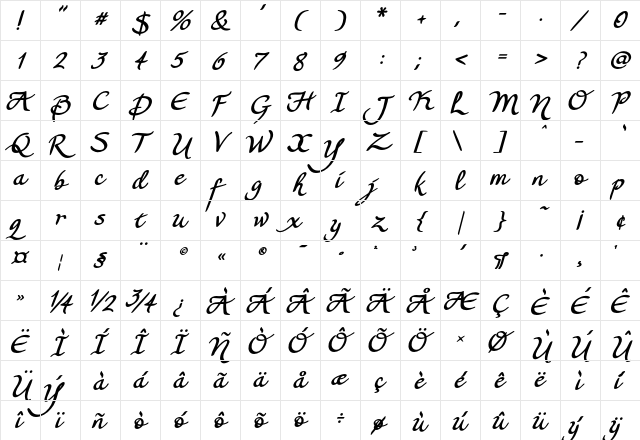 ! " # $ % & ' ( ) * + , - . / 0
1 2 3 4 5 6 7 8 9 : ; < = > ? @
A B C D E F G H I J K L M N O P
Q R S T U V W X Y Z [ \ ] ^ _ `
a b c d e f g h i j k l m n o p
q r s t u v w x y z { | } ~ ¡ ¢
¤ ¦ § ¨ © « © ¯ ° ¶ · ¸
» 1/4 1/2 3/4 ¿ À Á Â Ã Ä Å Æ Ç È É Ê
Ë Ì Í Î Ï Ñ Ò Ó Ô Õ Ö × Ø Ù Ú Û
Ü Ý à á â ã ä å æ ç è é ê ë ì í
î ï ñ ò ó ô õ ö ÷ ø ù ú û ü ý ÿ